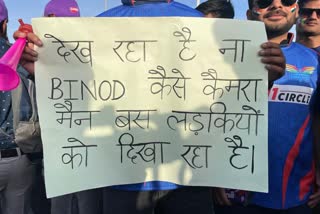 देख रहा है ना
BINOD कैसे कैमरा
मैन बस लड़कियों
को दिखा रहा है।
11CIRCLE